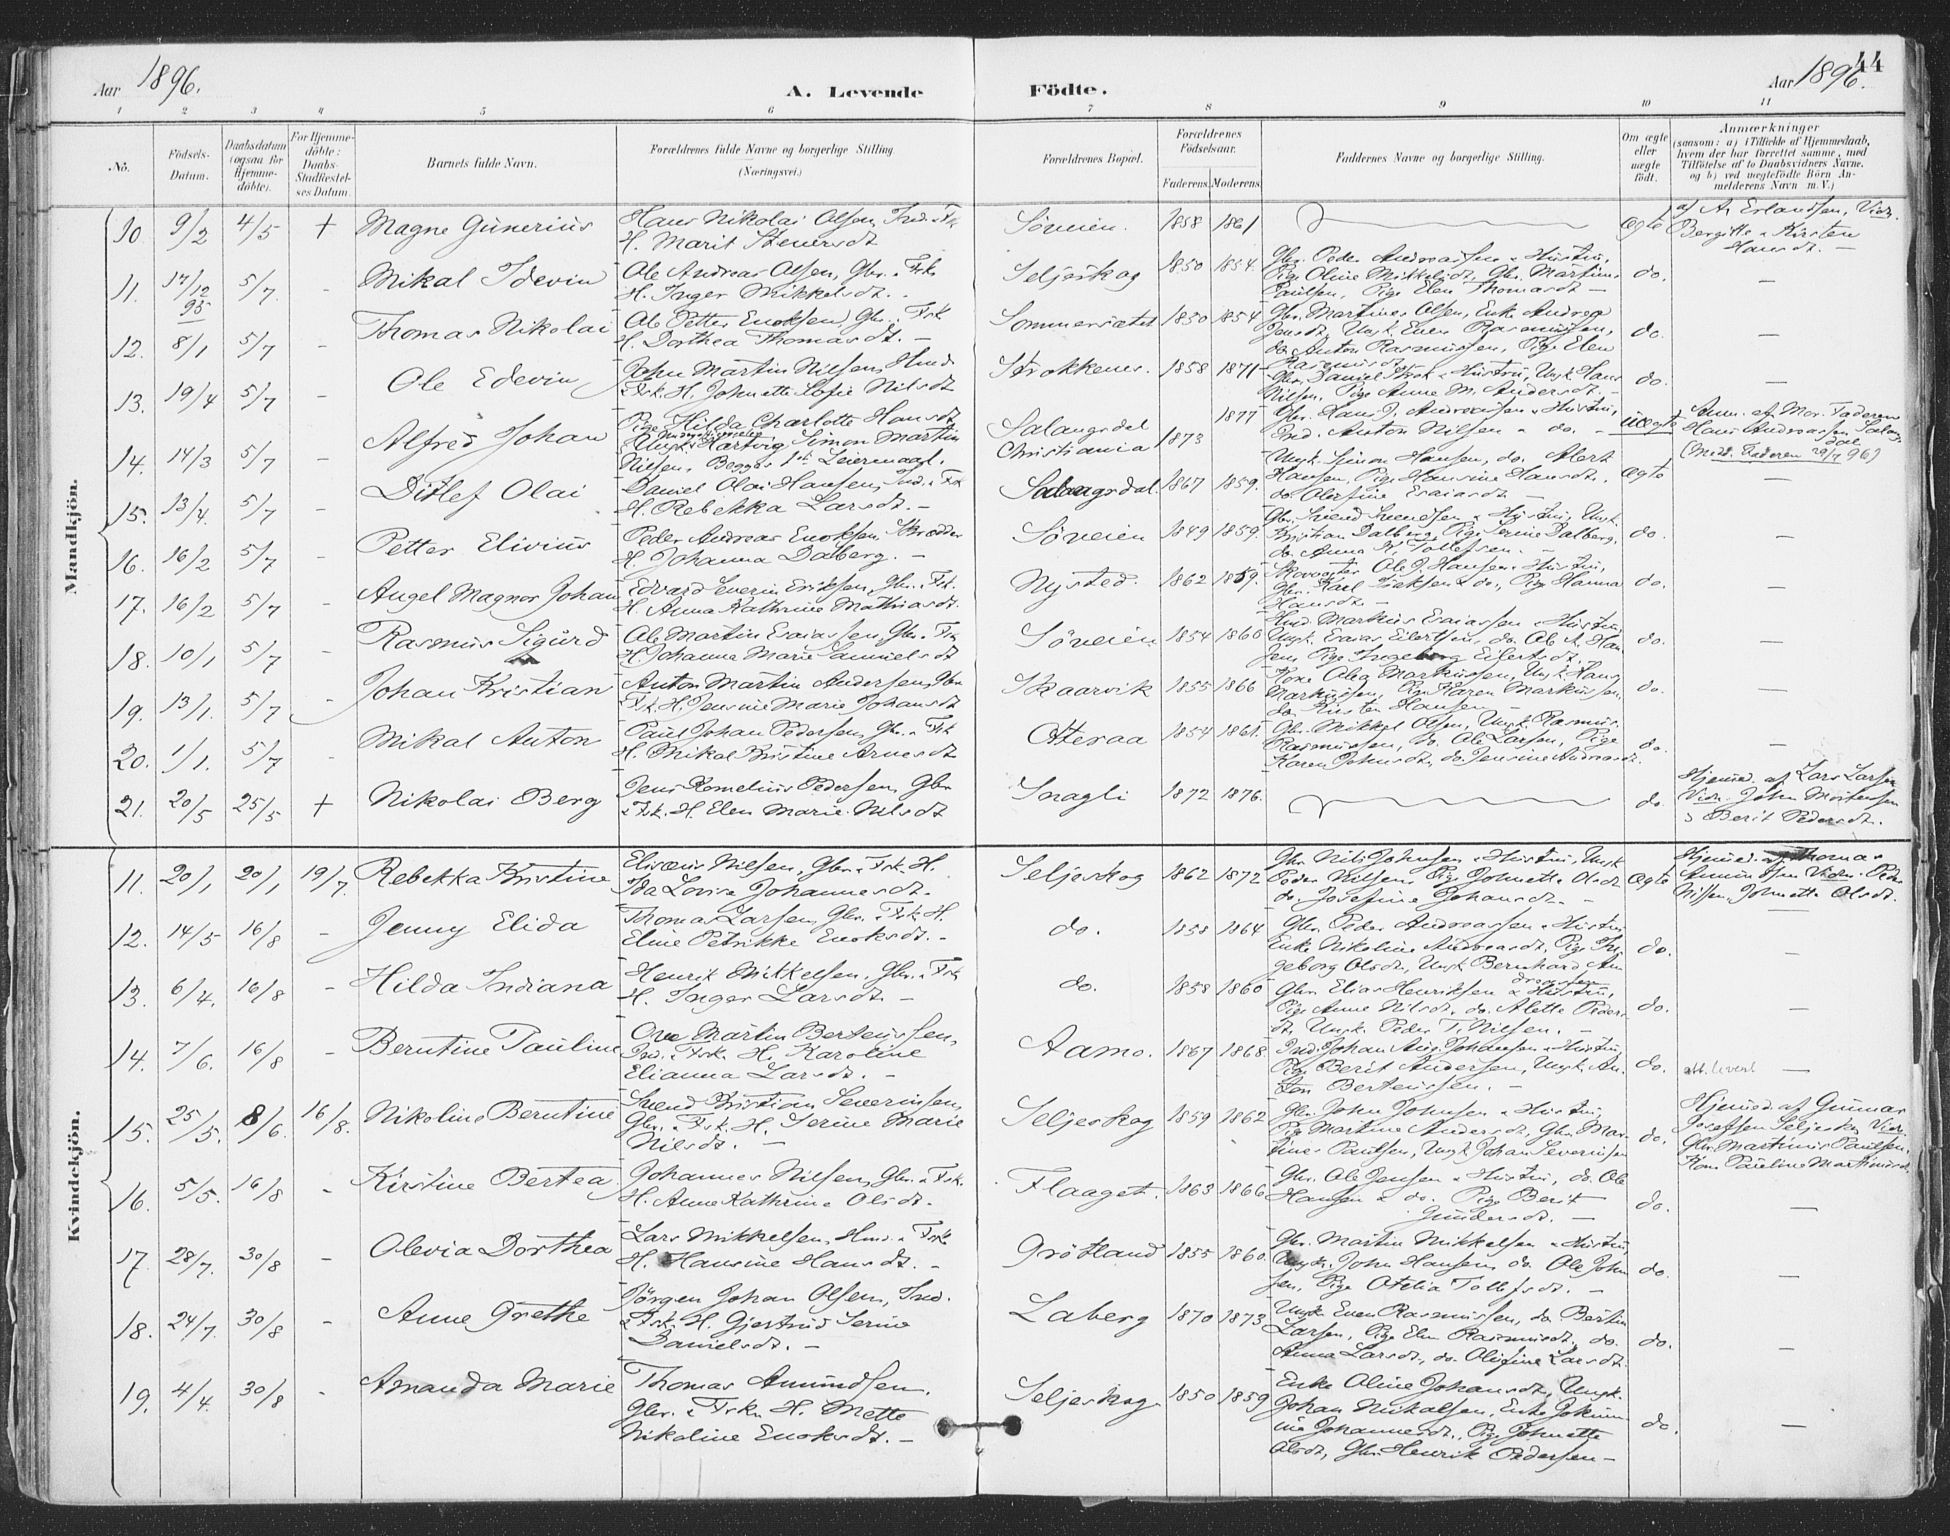 44
Aar 1896. A. Levende Födte. Aar 1896.
1 2 3 4 5 6 7 8 9 10 11
No. Födsels-Datum. Daabsdatum (ogsaa for Hjemme-döbte). For Hjemme-döbte: Daabs-Stadfæstel-ses Datum. Barnets fulde Navn. Forældrenes fulde Navne og borgerlige Stilling (Næringsvei.) Forældrenes Bopæl. Forældrenes Födselsaar. Faderens. Moderens. Faddernes Navne og borgerlige Stilling. Om ægte eller uægte födt. Anmærkninger (saasom: a) i Tilfælde af Hjemmedaab, hvem der har forrettet samme, med Tilföielse af to Daabsvidners Navne, og b) ved uægtefödte Börn An-melderens Navn m. V.)
Mandkjön.
10. 9/2 4/5 + Magne Gunerius Hans Nikolai Olsen, Ind. Söveien. 1858 1861 ægte af A. Erlandsen, Vidn.
H. Marit Bergitte Kirsten
Hansdt. —
11. 17/12 95 5/7 - Mikal Edevin Ole Andreas Olsen, Gbr. Seljeskog 1850 1854 Gbr. Peder Andreassen Hustru, do. —
H. Inger Mikkelsdt. Pige Oline Mikkelsdt, Gbr. Martinus
Paulsen, Pige Elen Thomasdt —
12. 8/1 5/7 - Thomas Nikolai Ole Petter Enoksen, Gbr. Sommersætet 1850 1854 Gbr. Martines Olsen, Enke Andrea do. —
H. Dorthea Thomasdt. — Jensdt, Ungk. Even Rasmussen,
do. Anton Rasmussen, Pige Elen
13. 19/4 5/7 - Ole Edevin John Martin Nilsen, Strokkenes. 1858 1871 Hustru, Ungk. Hans do. —
H. Johnette Sofie Nilsdt Nilsen, Pige Anne M. Andersdt. —
14. 14/3 5/7 - Alfred Johan Pige Hilda Charlotte Hansdt Salangsdal 1877 Gbr. Hans J. Andreassen Hustru, uægte Anm. af Mor. Faderen
Hartvig Simon Martin Christiania 1873 Ind. Anton Nilsen do. — Hans Andreassen
Nilsen, Begges 1ste Leiermaal.
15. 13/4. 5/7 - Ditlef Olai Daniel Olai Hansen, Ind. Salangsdal. 1867 1859. Hansen, Pige Hansine Hansdt. ægte —
H. Rebekka Larsdt. — Esaiasdt —
16. 16/2 5/7 - Petter Elivius Peder Andreas Enoksen, Skrædder Söveien 1849 1859. do. —
H. Johanna Dalberg. — Kristian Dalberg, Pige Serine Dalberg,
do. Anna Tollefsen. —
17. 16/2 5/7 - Angel Magnor Johan Edvard Severin Eriksen, Gbr. Nysted. 1862 1859. Ole J. Hansen Hustru, do. —
H. Anna Kathrine Mathiasdt. Pige Hanna
Hansdt. —
18. 10/1 5/7 - Rasmus Sigurd Ole Martin Esaiassen, Gbr. Söveien 1854 1860 Markus Esaiassen Hustru, do. —
H. Johanna Marie Samuelsdt Ungk. Esaias Eilertsen, do. Ole A. Han
sen, Pige Ingeborg Eilertsdt.
19. 13/1. 5/7 - Johan Kristian Anton Martin Andersen, Gbr. Skaarvik 1855 1866 Kone Olea Markussen, Ungk. Hans do. —
H. Jensine Marie Johansdt Markussen, Pige Karen Markussen
do. Kirsten Hansen —
20. 1/1. 5/7 - Mikal Anton Paul Johan Pedersen, Gbr. Otteraa 1854 1861. Gbr. Mikkel Olsen, Ungk. Rasmus do. —
H. Mikal Kristine Arnesdt Rasmussen, do. Ole Larsen, Pige
Karen Johnsdt, do. Jensine Andreasdt.
21. 20/5 25/5 + Nikolai Berg Jens Kornelius Pedersen, Gbr. Snagli 1872 1876. do. Hjemmed. af Lars Larsen
H. Elen Marie Nilsdt Vidn. John Mortensen
Berit Pedersdt.
Kvindekjön.
11. 20/1 20/1 19/7. Rebekka Kristine Elisæus Nilsen, Gbr. Frk. H. Seljeskog 1862 1872 Gbr. Nils Johnsen Hustru, Ungk ægte Hjemmed. af Thomas
Ida Lovise Johannesdt. Peder Nilsen, Pige Johnette Olsdt Amundsen Vidn. Peder
do. Josefine Johansdt. — Nilsen, Johnette Olsdt.
12. 14/5 16/8 - Jenny Elida Thomas Larsen, Gbr. Frk. H. do. 1858 1864 Gbr. Peder Andreassen Hustru do. —
Eline Petrikke Enoksdt. — Enke Nikoline Andreasdt, Pige In
geborg Olsdt, Ungk. Bernhard An
dreassen
13. 6/4. 16/8 - Hilda Indiana Henrik Mikkelsen, Gbr. do. 1858 1860 Gbr. Elias Henriksen Hustru, do. —
H. Inger Larsdt. — Pige Anne Nilsdt, do. Alette Peders
dt, Ungk. Peder T. Nilsen. —
14. 7/6. 16/8 - Berntine Pauline Ove Martin Berteussen, Aamo. 1867 1868 Ind. Johan Aug. Johansen Hustru, do. —
Ind. Frk. H. Karoline Pige Berit Andersen, Ungk. An
Elianna Larsdt. — ton Berteussen. —
15. 25/5. 8/6. 16/8. Nikoline Berntine Svend Kristian Severinsen, Seljeskog 1859 1862 Gbr. John Johnsen Hustru, do. Hjemmed. af Gunnar
Gbr. Frk. H. Serine Marie Pige Martine Andersdt, Gbr. Mar- Josefsen Seljeskog Vidn.
Nilsdt. — tines Paulsen, Ungk. Johan Severinsen Gbr. Martinus Paulsen,
Kone Pauline Martinusdt
16. 5/5. 16/8 - Kirstine Bertea Johannes Nilsen, Gbr. Flaaget. 1863 1866 Gbr. Ole Jensen Hustru, do. Ole do. —
H. Anne Kathrine Olsdt. Hansen do. Pige Berit
Gundersdt. —
17. 28/7. 30/8 - Olevia Dorthea Lars Mikkelsen, Grötland 1855 1860. Gbr. Martin Mikkelsen Hustru, do. —
H. Hansine Hansdt. — Ungk. John Hansen, do. Ole John
sen, Pige Otelia Tollefsdt. —
18. 24/7. 30/8 - Anne Grethe Jörgen Johan Olsen, Ind. Laberg 1870 1873 Ungk. Even Rasmussen, do. Bertin do. —
Frk. H. Gjertrud Serine Larsen, Pige Elen Rasmusdt, do.
Danielsdt. — Anna Larsdt, do. Olefine Larsdt.
19. 4/4. 30/8 - Amanda Marie Thomas Amundsen, Seljeskog 1850 1859 Enke Oline Johansdt, Ungk. do. —
Gbr. Frk. H. Mette Johan Mikalsen, Enke Jokum
Nikoline Enoksdt. — ine Johannesdt, Pige Johnette
Olsdt, Gbr. Henrik Pedersen —